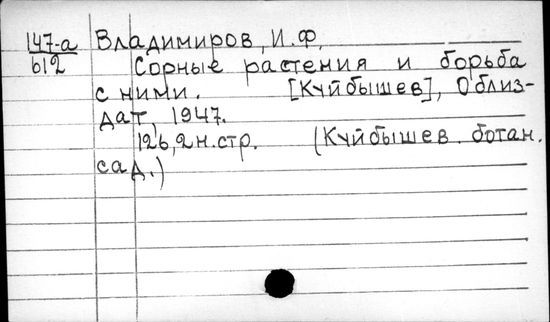 147-а Владимиров, И.Ф.
612 Сорные растения и борьба
с ними. [Куйбышев], Облиз-
дат, 1947.
126,2н.стр. (Куйбышев. ботан.
сад.)